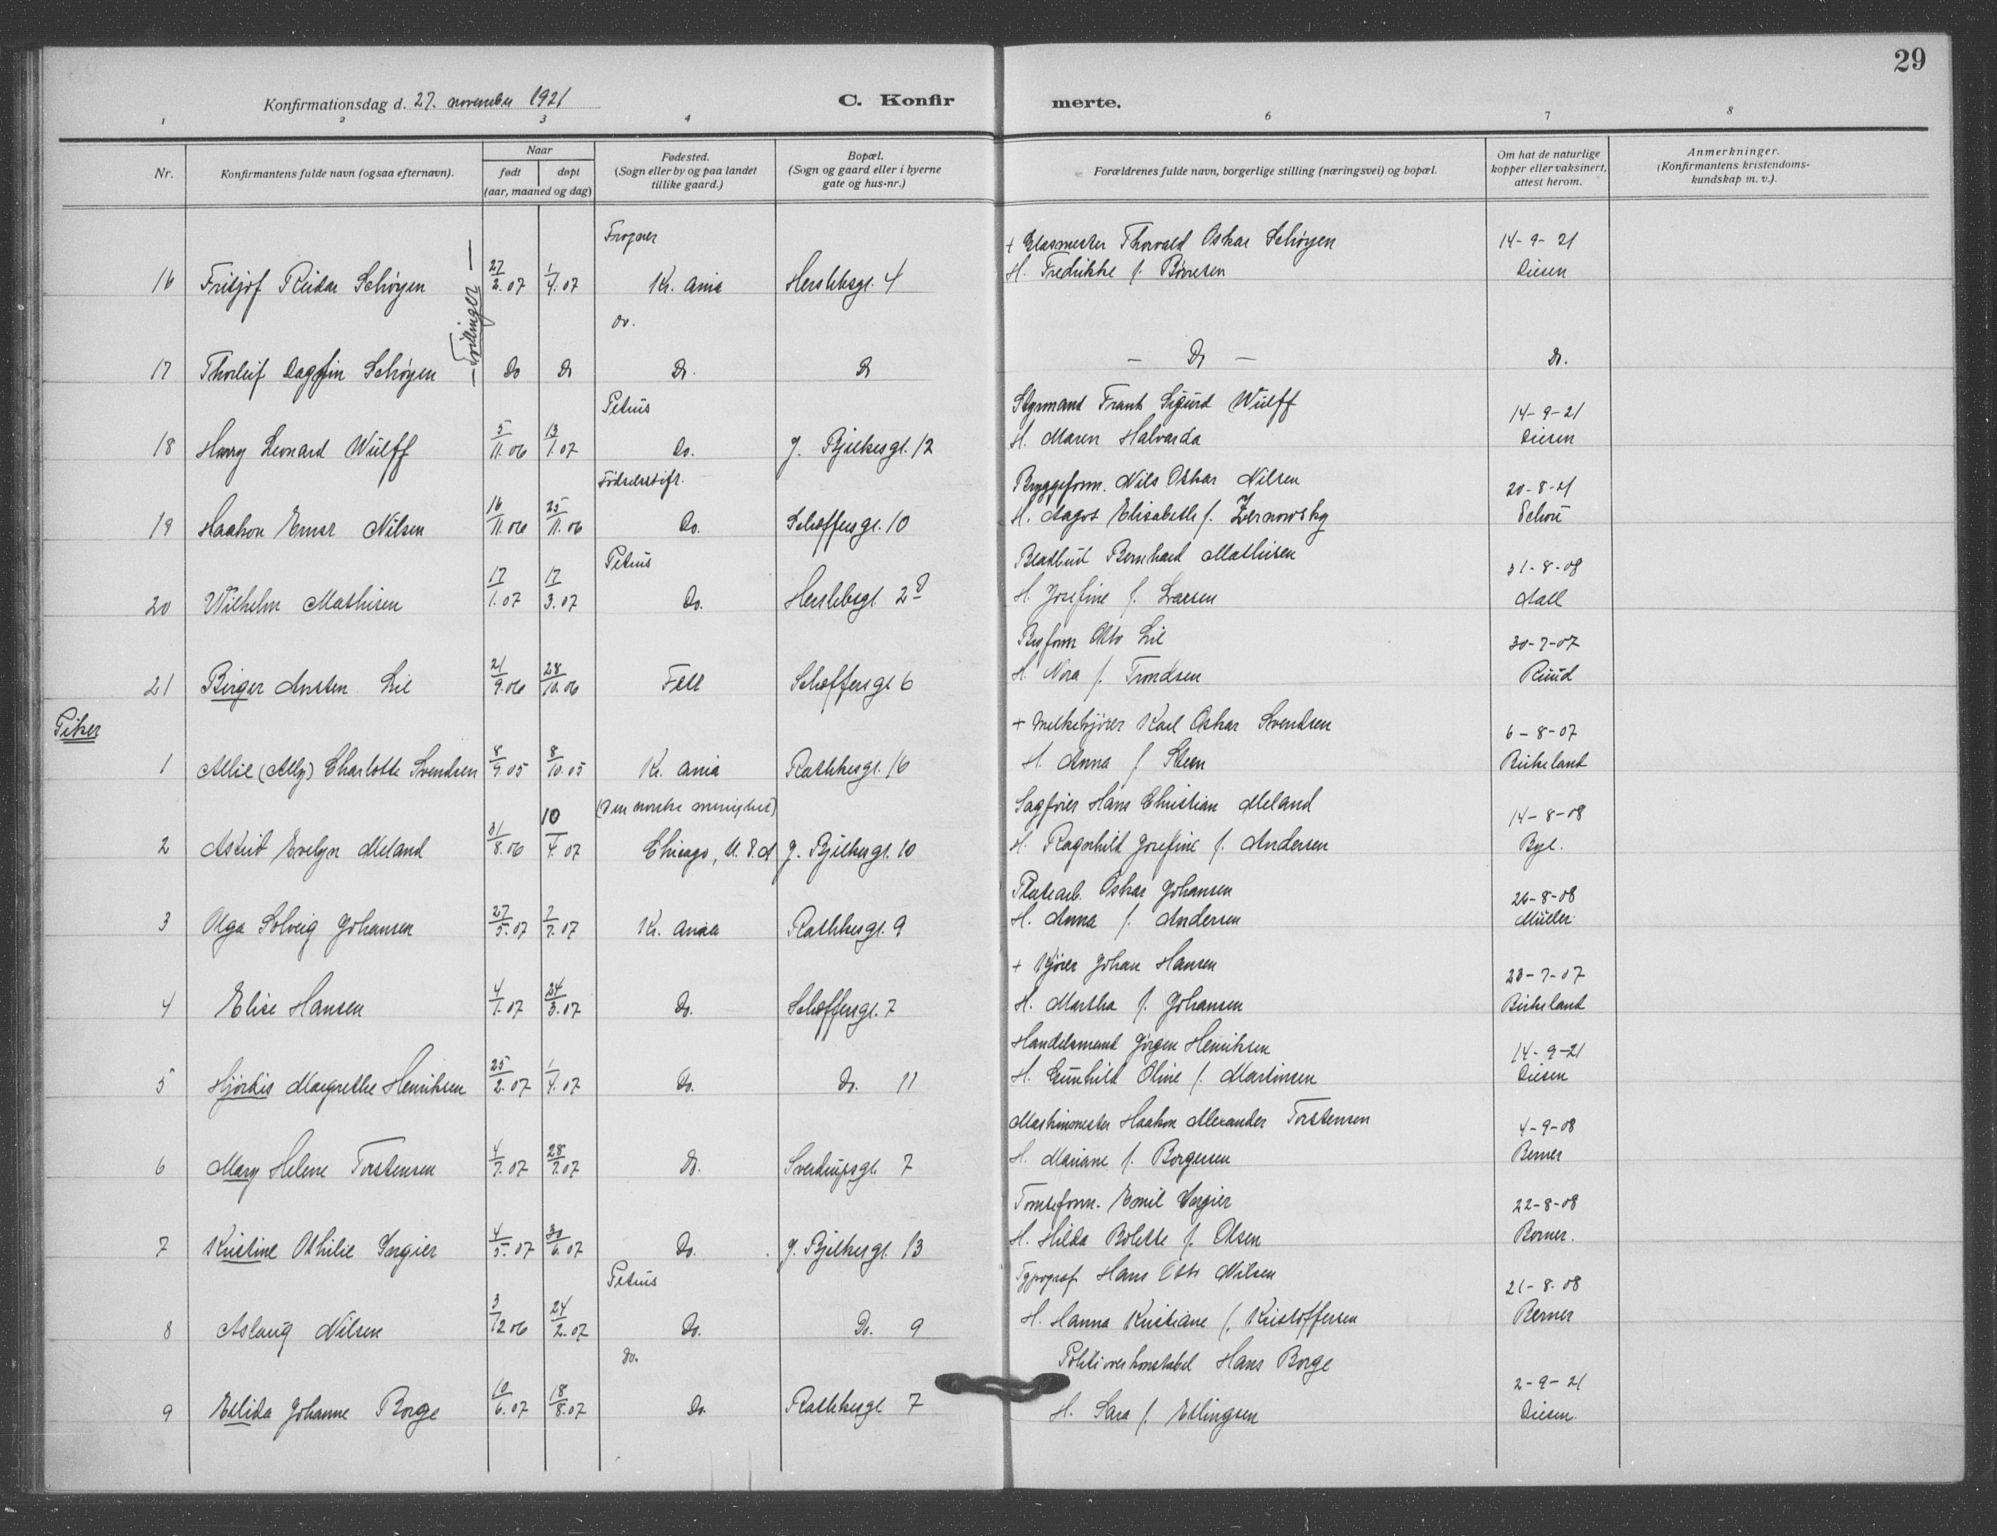 29
Konfirmationsdag d. 27. november 1921 C. Konfirmerte.
1 2 3 4 6 7 8
Nr. Konfirmantens fulde navn (ogsaa efternavn). Naar født døpt (aar, maaned og dag) Fødested. (Sogn eller by og paa landet tillike gaard.) Bopæl. (Sogn og gaard eller i byerne gate og hus-nr.) Forældrenes fulde navn, borgerlige stilling (næringsvei) og bopæl. Om hat de naturlige kopper eller vaksinert, attest herom. Anmerkninger. (Konfirmantens kristendomskundskap m. v.).
Frogner + Glasmester Thorvald Oskar Schøyen 14-9-21
16 Fritjof Reidar Schøyen 27/2.07 1/4.07 Kr.ania Herslebsgt. 4 H. Fredrikke f. Børresen Diesen
– Tvillinger –
Do.
17 Thorleif Dagfin Schøyen Do Do Do. Do – Do – Do.
Petrus Styrmand Frants Sigurd Wulff 14-9-21
18 Harry Leonard Wulff 5/11.06 13/1.07 Do. J. Bjelkesgt. 12 H. Maren Halvarda Diesen
Fødselsstift. Bryggeform. Nils Oskar Nilsen 20-8-21
19 Haakon Ernst Nilsen 16/11.06 25/11.06 Do. Schæffersgt. 10 H. Dagot Elisabeth f. Zernowsky Schou
Petrus Bladbud Bernhard Mathisen 31-8-08
20 Wilhelm Mathisen 17/1.07 17/3.07 Do. Herslebsgt. 2 H. Josefine f. Larsen Aall
Otto Lie 30-7-07
21 Birger Lie 21/9.06 28/10.06 Fell Schæffersgt 6 H. Nora f. Trondsen Ruud
Piker
+ Melkekjører Karl Oskar Svendsen 6-8-07
1 Allie (Ally) Charlotte Svendsen 8/9.05 8/10.05 Kr.ania Rathkesgt. 16 H. Anna f. Steen Birkeland
(Den norske menighet) Sagfører Hans Christian Meland 14-8-08
2 Astrid Evelyn Meland 31/8.06 10/4.07 Chicago, U.S.A J. Bjelkesgt. 10 H. Ragnhild Josefine f. Andersen Bye.
Platearb. Oskar Johansen 26-8-08
3 Olga Solveig Johansen 27/5.07 7/7.07 Kr.ania Rathkesgt. 9 H. Anna f. Andersen Müller
+ Kjører Johan Hansen 23-7-07
4 Elise Hansen 4/1.07 24/3.07 Do. Schæffersgt. 7 H. Martha f. Johansen Birkeland
Handelsmand Jørgen Henriksen 14-9-21
5 Hjørdis Margrethe Henriksen 25/2.07 1/4.07 Do. Do. 11 H. Gunhild Oline f. Martinsen Diesen
Maskinmester Haakon Alexander Torstensen 4-9-08
6 Mary Helene Torstensen 4/7.07 28/7.07 Do. Sverdrupsgt. 7 H. Mariane f. Borgersen Berner
Tomteform. Emil Sogier 22-8-08
7 Kristine Othilie Sogier 4/5.07 30/6.07 Do. J. Bjelkesgt. 13 H. Hilda Bolette f. Olsen Berner.
Petrus Typograf Hans Otto Nilsen 21-8.08
8 Aslaug Nilsen 3/12 06 24/2.07 Do. Do. 9 H. Hanna Kristiane f. Kristoffersen Berner
Do. Politioverkonstabel Hans Borge 2-9-21
9 Ellida Johanne Borge 10/6.07 18/8.07 Do. Rathkesgt 7 H. Sara f. Ellingsen Diesen.